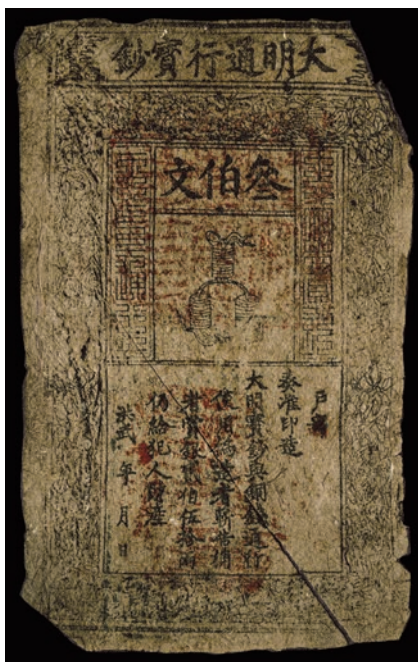 大明通行寶鈔
叁伯文
戶部
奏准印造
大明寶鈔與銅錢通行
使用偽造者斬告捕
者賞銀貳伯伍拾兩
仍給犯人財產
洪武 年 月 日